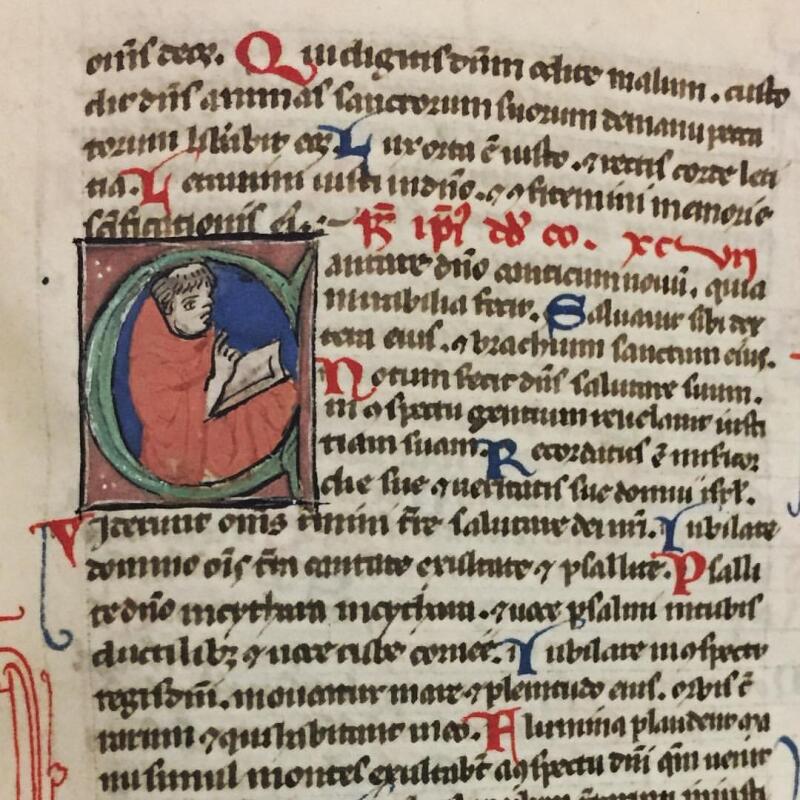 om̅s deos. Qui diligitis dn̅m odite malum. custo
dit dn̅s animas sanctorum suorum de manu pecca
torum liƀabit eos. Lux orta ē iusto. ⁊ rectis corde leti
tia. Letamini iusti in dn̅o. ⁊ ꝯfitemini memorie
sc̅ificationis ei.
R̄ ip̄i dđ co. xcvii
Cantate dn̅o canticum nouū. quia
mirabilia fecit. Saluauit sibi dex
tera eius. ⁊ brachium sanctum eius.
Notum fecit dn̅s salutare suum.
in ꝯspectu gentium reuelauit iusti
tiam suam. Recordatus ē misicor
die sue ⁊ ueritatis sue domui isrl̄.
Viderunt om̅s t̅mini t̅re salutare dei nr̅i. Iubilate
domino oı̅s t̅ra cantate exultate ⁊ psallite. Psalli
te dn̅o in cythara in cythara. ⁊ uoce psalmi in tubis
ductilibꝫ ⁊ uoce tube cornee. Iubilate in ꝯspectu
regis dn̅i. moueatur mare ⁊ plenitudo eius. orbis t̅
rarum ⁊ qui habitant in eo. Flumina plaudent ma
nu simul montes exultabt̅ a ꝯspectu dn̅i qm̅ uenit